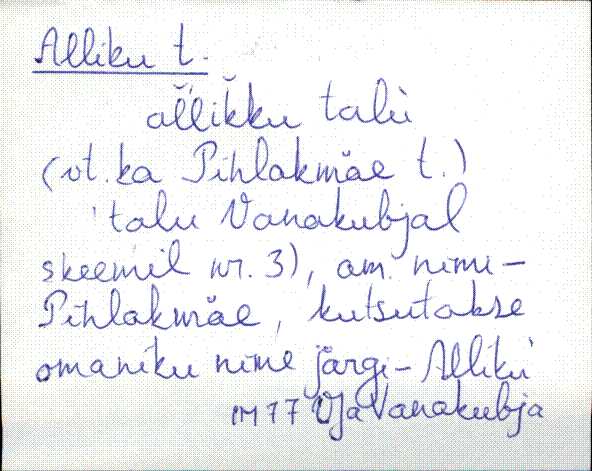 Alliku t.
al̆lik̆ku talù
(vt. ka Pihlakmäe t.)
talu Vanakubjal
skeemil nr. 3), am. nimi -
Pihlakmäe, kutsutakse
omaniku nime järgi - Alliku
IM 77 VJa Vanakubja